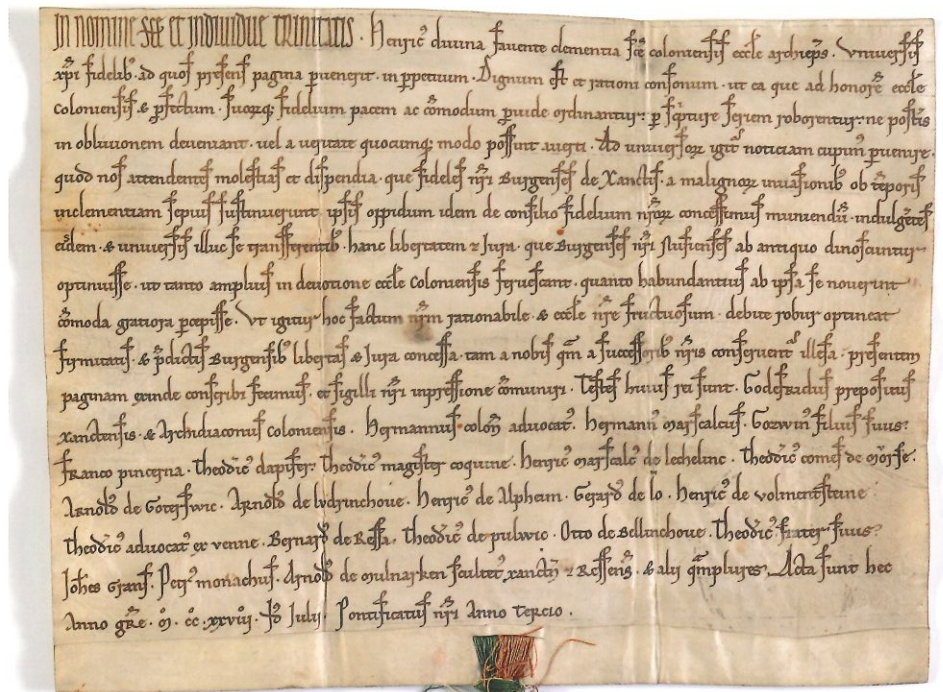 In nomine sce et individue trinitatis. Henric' divina favente clementia sce coloniensis eccle archieps. Universis
xpi fidelib' ad quos presens pagina pvenerit. in ppetuum. Dignum est et rationi consonum. ut ea que ad honore eccle
coloniensis & pfectum. suorq; fidelium pacem ac comodum pvide ordinantur: p scpture seriem roborentur: ne postis
in oblivionem deveniant. vel a veritate quocumq; modo possint averti. Ad universor igit noticiam cupim' pvenire.
quod nos attendentes molestias et dispendia. que fideles nri Burgenses de Xanctis. a malignor invasionib' ob teporis
inclementiam sepius sustinuerunt. ipsis oppidum idem de consilio fidelium nror concessimus muniendu. indulgetes
eidem. & universis illuc se transferentib'. hanc libertatem & Jura. que Burgenses nri Nusienses ab antiquo dinoscuntur
optinuisse. ut tanto amplius in devotione eccle Coloniensis fervescant. quanto habundantius ab ipsa se noverint
comoda gratiora pcepisse. Ut igitur hoc factum nrm rationabile. & eccle nre fructuosum. debite robur optineat
firmitatis. & pdictis Burgensib' libertas & Jura concessa. tam a nobis qm a successorib' nris conservent' illesa. presentem
paginam exinde conscribi fecimus. et sigilli nri inpressione comuniri. Testes huius rei sunt. Godefridus prepositus
xanctensis. & Archidiaconus Coloniensis. Hermannus colon advocat'. hermann' Marscalcus. Gozwin' filius suus:
franco pincerna. theodic' dapifer: theodic' magister coquine. henric' marscalc' de lechelinc. theodic' comes de morse.
Arnold' de Goterswic. Arnold' de lvdrinchove. henric' de Alpheim. Gerard' de lo. henric' de volmentsteine
theodic' advocat' ex venne. Bernard' de Ressa. theodic' de pulwic. Otto de Bellinchove. theodic' frater suus:
Johes grans. Petr' monachus. Arnold' de mulnarken scultet' xanctn & Ressens. & alij qmplures. Acta sunt hec
Anno gre. m. cc. xxviij. Id Julij. Pontificatus nri Anno tercio.